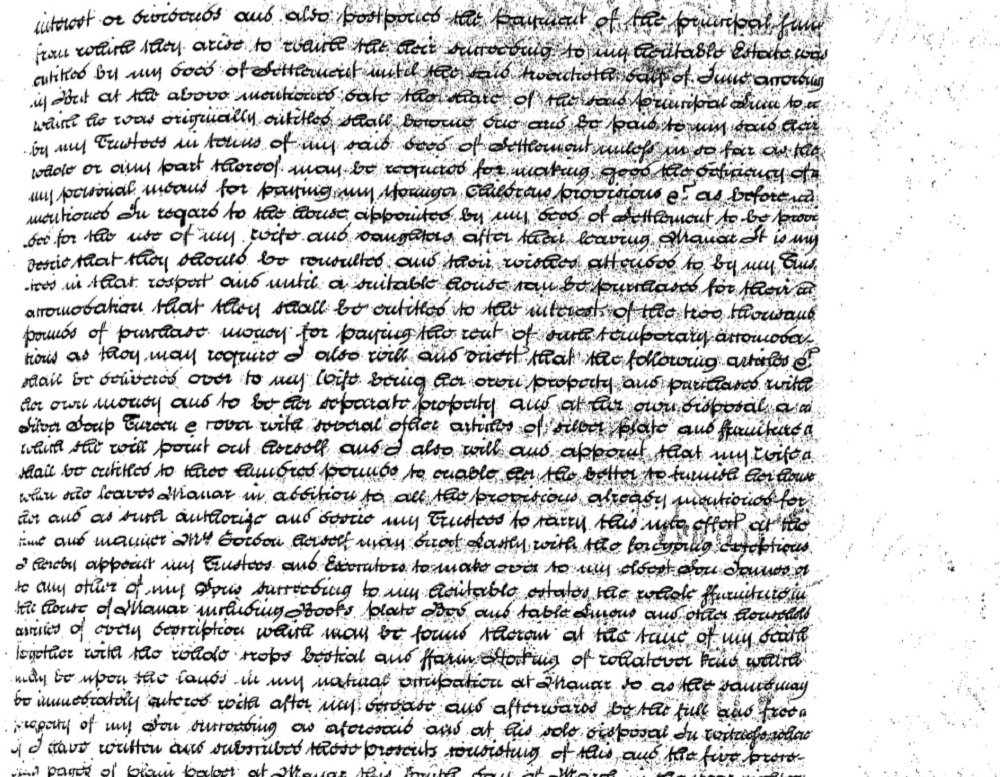 interest or dividends and also postpones the payment of the principal sum
from which they arise to which the heir succeeding to my heritable Estate was
entitled by my deed of Settlement until the said twentieth day of June arriving
in that at the above mentioned date the share of the said principal Sum to
which he was originally entitled shall become due and be paid to my said heir
by my Trustees in terms of my said deed of Settlement unless in so far as the
whole or any part thereof may be required for making good the deficiency of
my personal means for paying my Younger Childrens provisions &c as before
mentioned In regard to the house appointed by my deed of Settlement to be provi
ded for the use of my wife and daughters after their leaving Manar It is my
desire that they should be consulted and their wishes attended to by my Trus
tees in that respect and until a suitable house can be purchased for their
accomodation that they shall be entitled to the interest of the two thousand
pounds of purchase money for paying the rent of such temporary accomoda
tions as they may require I also will and direct that the following articles &c
shall be delivered over to my Wife being her own property and purchased with
her own money and to be her separate property and at her own disposal a
Silver Soup Tureen & cover with several other articles of silver plate and ffurniture
which she will point out herself and I also will and appoint that my Wife
shall be entitled to three hundred pounds to enable her the better to furnish her house
when she leaves Manar in addition to all the provisions already mentioned for
her and as such authorize and desire my Trustees to carry this into effect at the
time and manner Mrs Gordon herself may direct Lastly with the foregoing exceptions
I hereby appoint my Trustees and Executors to make over to my eldest Son James or
to any other of my Sons succeeding to my heritable estates the whole ffurniture in
the house of Manar including Books plate Bed and table Linens and other household
articles of every description which may be found therein at the time of my death
together with the whole crops bestial and ffarm Stocking of whatever kind which
may be upon the lands in my natural occupation at Manar so as the same may
be immediately entered with after my decease and afterwards be the full and free
property of my Son succeeding as aforesaid and at his sole disposal In witness whereof
I have written and subscribed these presents consisting of this and the five prece
pages of plain paper at Manar this fourth day of March